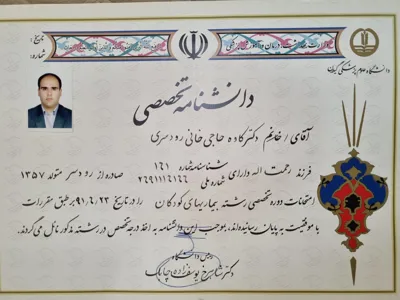 تاریخ:
شماره:
وزارت بهداشت، درمان و آموزش پزشکی
دانشگاه علوم پزشکی گیلان
دانشنامه تخصصی
آقای / خانم دکتر کاده حاجی خانی رودسری
فرزند رحمت اله دارای شناسنامه شماره ۱۴۱ صادره از رودسر متولد ۱۳۵۷
شماره ملی
امتحانات دوره تخصصی رشته بیماریهای کودکان را در تاریخ ۹۱/۶/۲۳ بر طبق مقررات
با موفقیت به پایان رسانیده‌اند، بموجب این دانشنامه به اخذ درجه تخصص در رشته مذکور نائل می‌گردند.
رئیس دانشگاه
دکتر شاهرخ یوسف زاده چابک